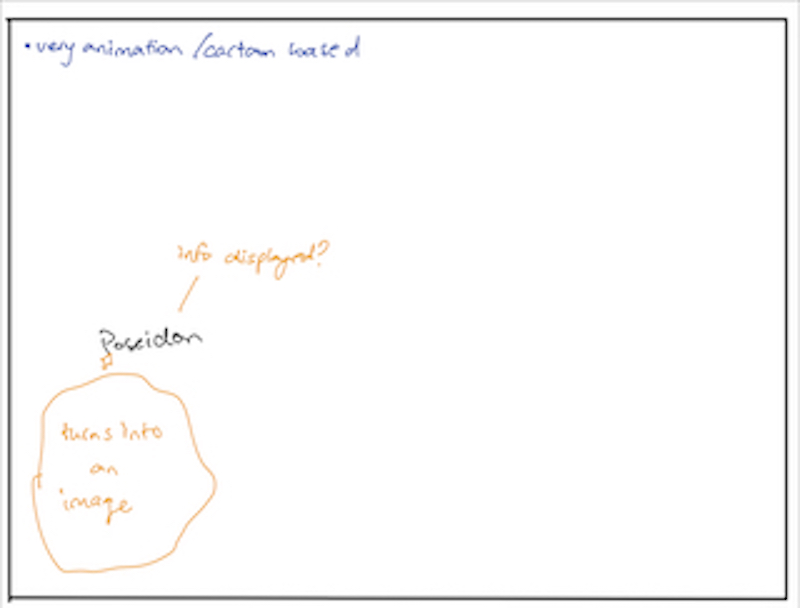 • very animation / cartoon based
info displayed?
Poseidon
turns into
an
image